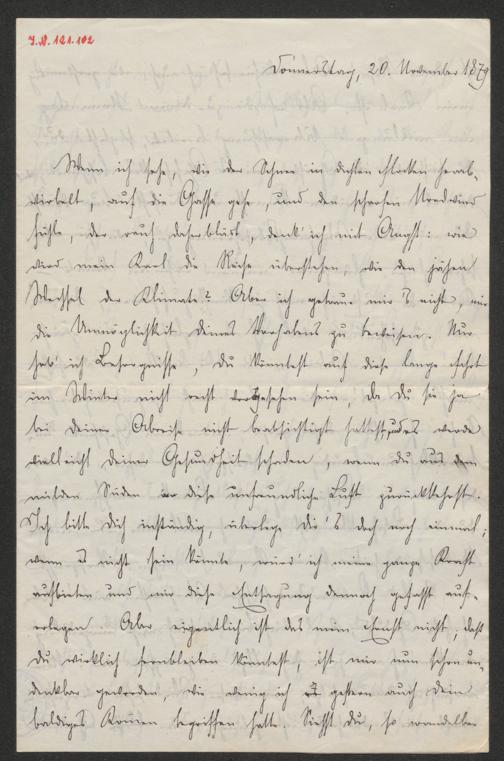 I.N. 121.102
Donnerstag, 20. November 1879
Wenn ich sehe, wie der Schnee in dichten Flocken herab-
wirbelt, auf die Gasse gehe und den scharfen Nordwind
fühle, der rauh daherbläst, denk' ich mit Angst: wie
wird mein Karl die Reise überstehen, wie den jähen
Wechsel der Klimate? Aber ich getraue mir's nicht, mir
die Unmöglichkeit Deines Vorhabens zu beweisen. Nur
hab' ich Besorgnisse, Du könntest auf diese lange Fahrt
im Winter nicht recht vorgesehen sein, da Du sie ja
bei Deiner Abreise nicht beabsichtigt hattest, und es würde
vielleicht Deiner Gesundheit schaden, wenn du aus dem
milden Süden in diese unfreundliche Luft zurückkehrst.
Ich bitte Dich inständig, überlege Dir's doch noch einmal;
wenn es nicht sein könnte, würd' ich meine ganze Kraft
aufbieten und mir diese Entsagung dennoch gefasst auf-
erlegen. Aber eigentlich ist das mein Ernst nicht, dass
Du wirklich fernbleiben könntest, ist mir nun schon un-
denkbar geworden, wie wenig ich es gestern auch Dein
baldiges Kommen begriffen hatte. Siehst Du, so wandelbar